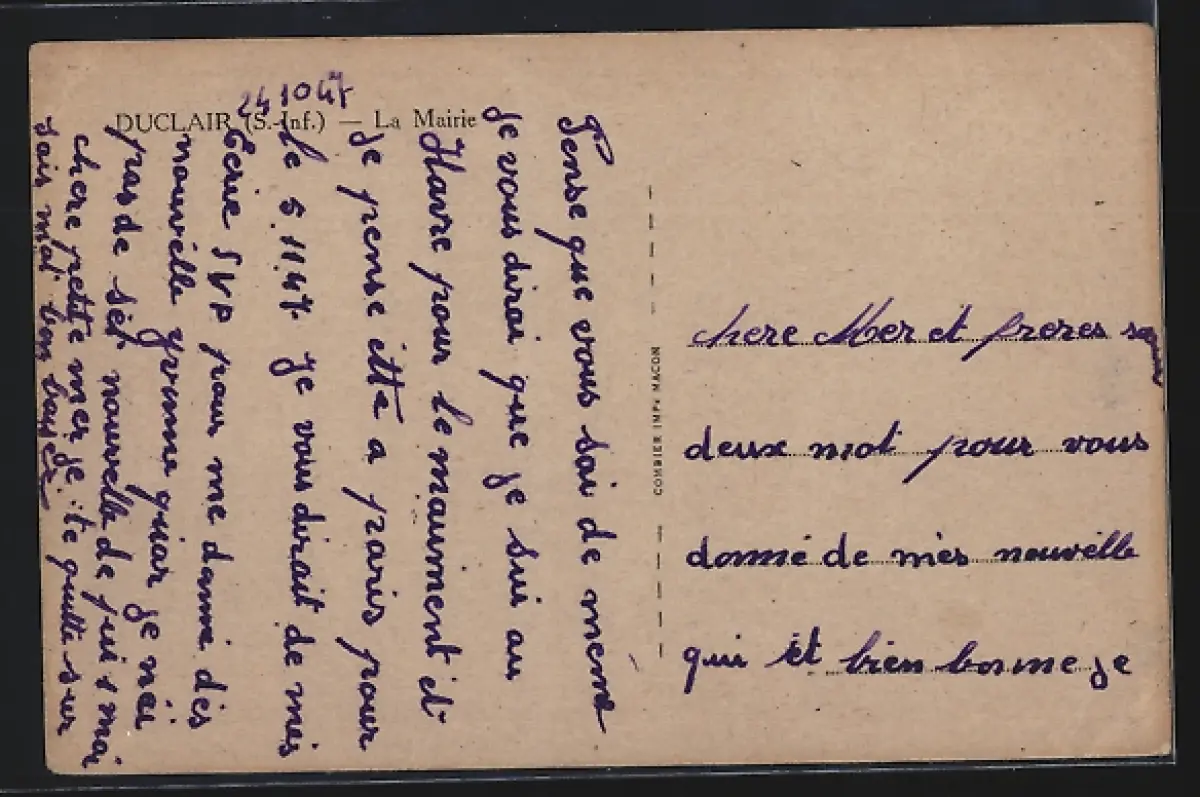 DUCLAIR (S.-Inf.) — La Mairie
24 10 47
chere Mer et freres sœur
deux mot pour vous
donné de mès nouvèlle
qui èt bien bonne je
Pense que vous sai de meme
Je vous dirai que je suis au
Havre pour le maument èt
Je pense ètte a paris pour
le 5.11.47. je vous dirait de mès
Ecrie SVP pour me donné dès
nouvèlle yvonne guiar je n'ai
pas de sès nouvelle de puis mai
chere petite mer je te quitte sur
sais mot bon baiser
COMBIER IMPr MACON